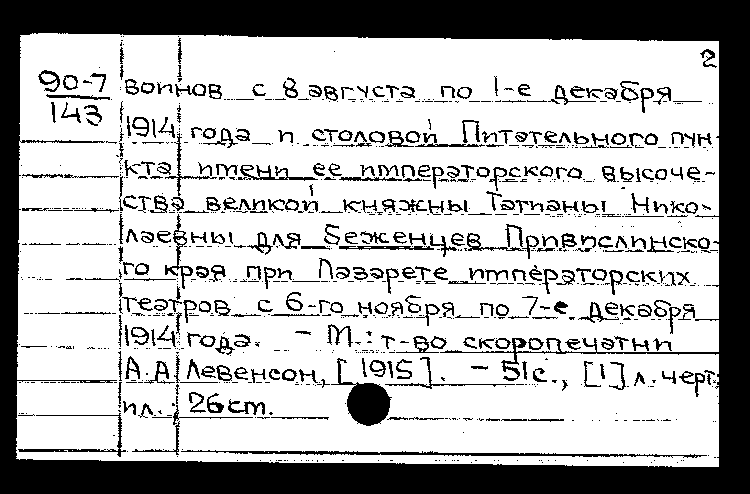 2
90-7
143
воинов с 8 августа по 1-е декабря
1914 года и столовой Питательного пун-
кта имени ее императорского высоче-
ства великой княжны Татианы Нико-
лаевны для беженцев Привислинско-
го края при Лазарете императорских
театров с 6-го ноября по 7-е декабря
1914 года. - М.: т-во скоропечатни
А.А Левенсон, [1915]. - 51с., [1] л. черт.
ил.; 26 cm.